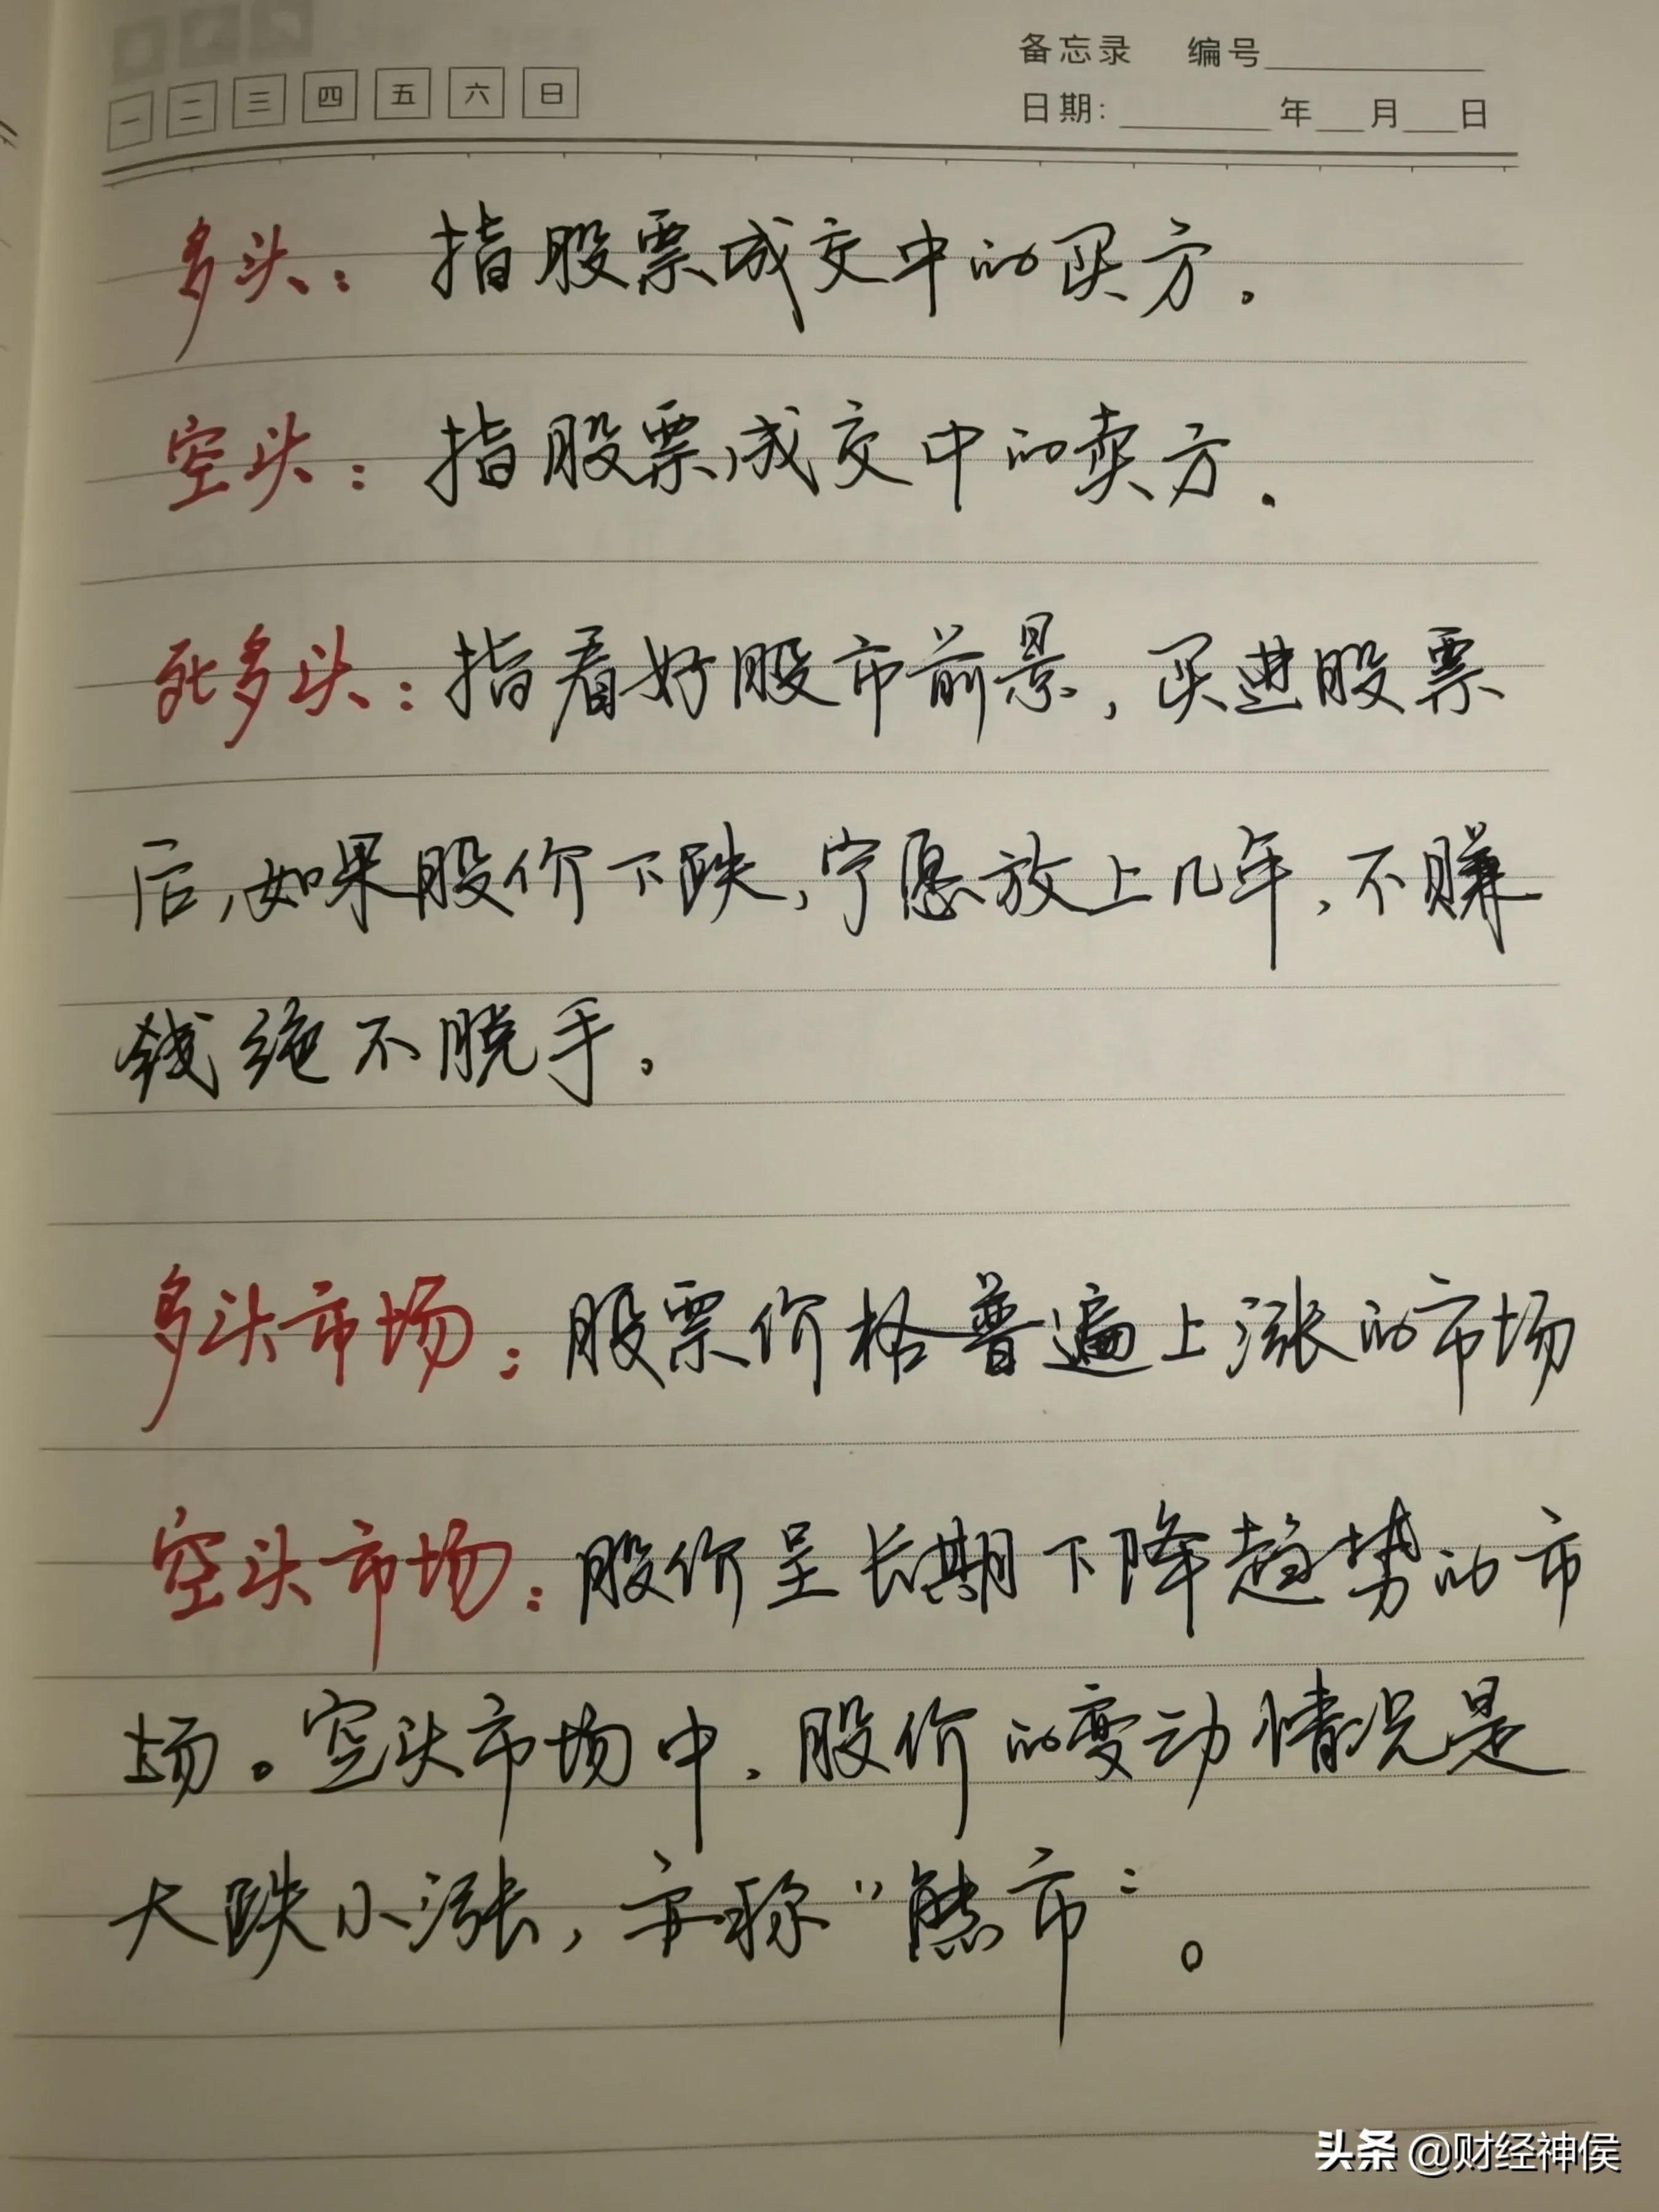 备忘录 编号
一 二 三 四 五 六 日
日期: 年 月 日
多头：指股票成交中的买方.
空头：指股票成交中的卖方.
死多头：指看好股市前景,买进股票
后,如果股价下跌,宁愿放上几年,不赚
钱绝不脱手.
多头市场：股票价格普遍上涨的市场
空头市场：股价呈长期下降趋势的市
场。空头市场中,股价的变动情况是
大跌小涨,亦称“熊市”。
头条 @财经神侯